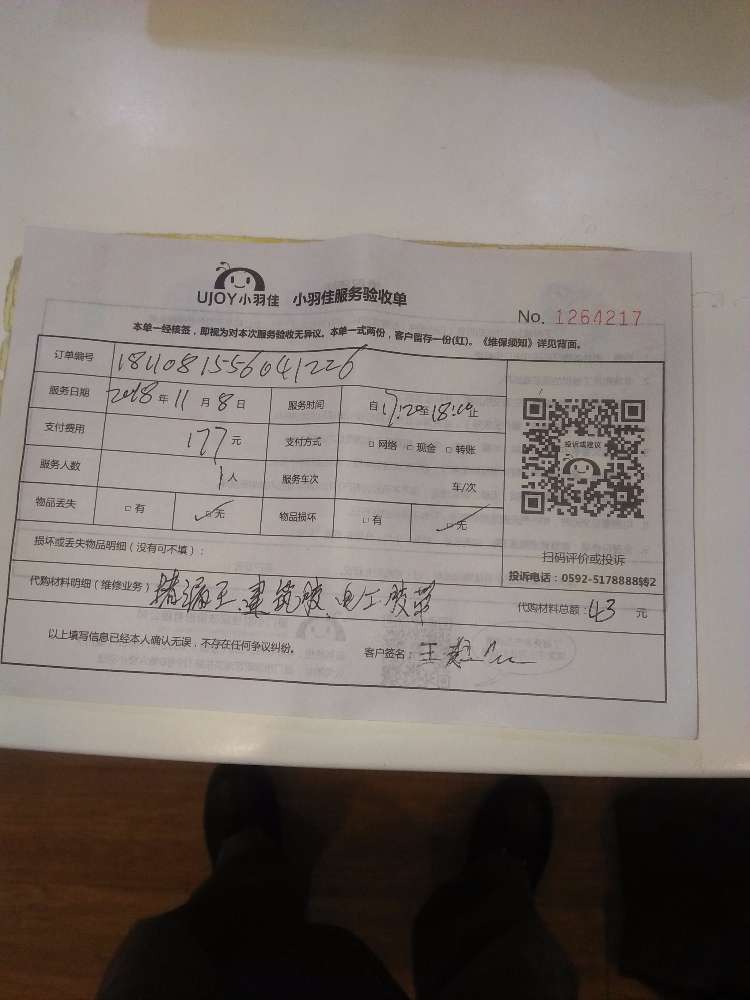 UJOY小羽佳 小羽佳服务验收单
No. 1264217
本单一经核签，即视为对本次服务验收无异议。本单一式两份，客户留存一份(红)。《维保须知》详见背面。
订单编号 1811081556041226
服务日期 2018年11月8日 服务时间 自17:20至18:00止
支付费用 177元 支付方式 □网络 □现金 □转账
服务人数 1人 服务车次 车/次
物品丢失 □有 □无 物品损坏 □有 □无
投诉或建议
扫码评价或投诉
投诉电话：0592-5178888转2
损坏或丢失物品明细（没有可不填）：
代购材料明细（维修业务） 堵漏王 建筑胶、电工胶革 代购材料总额：43元
以上填写信息已经本人确认无误，不存在任何争议纠纷。 客户签名：王